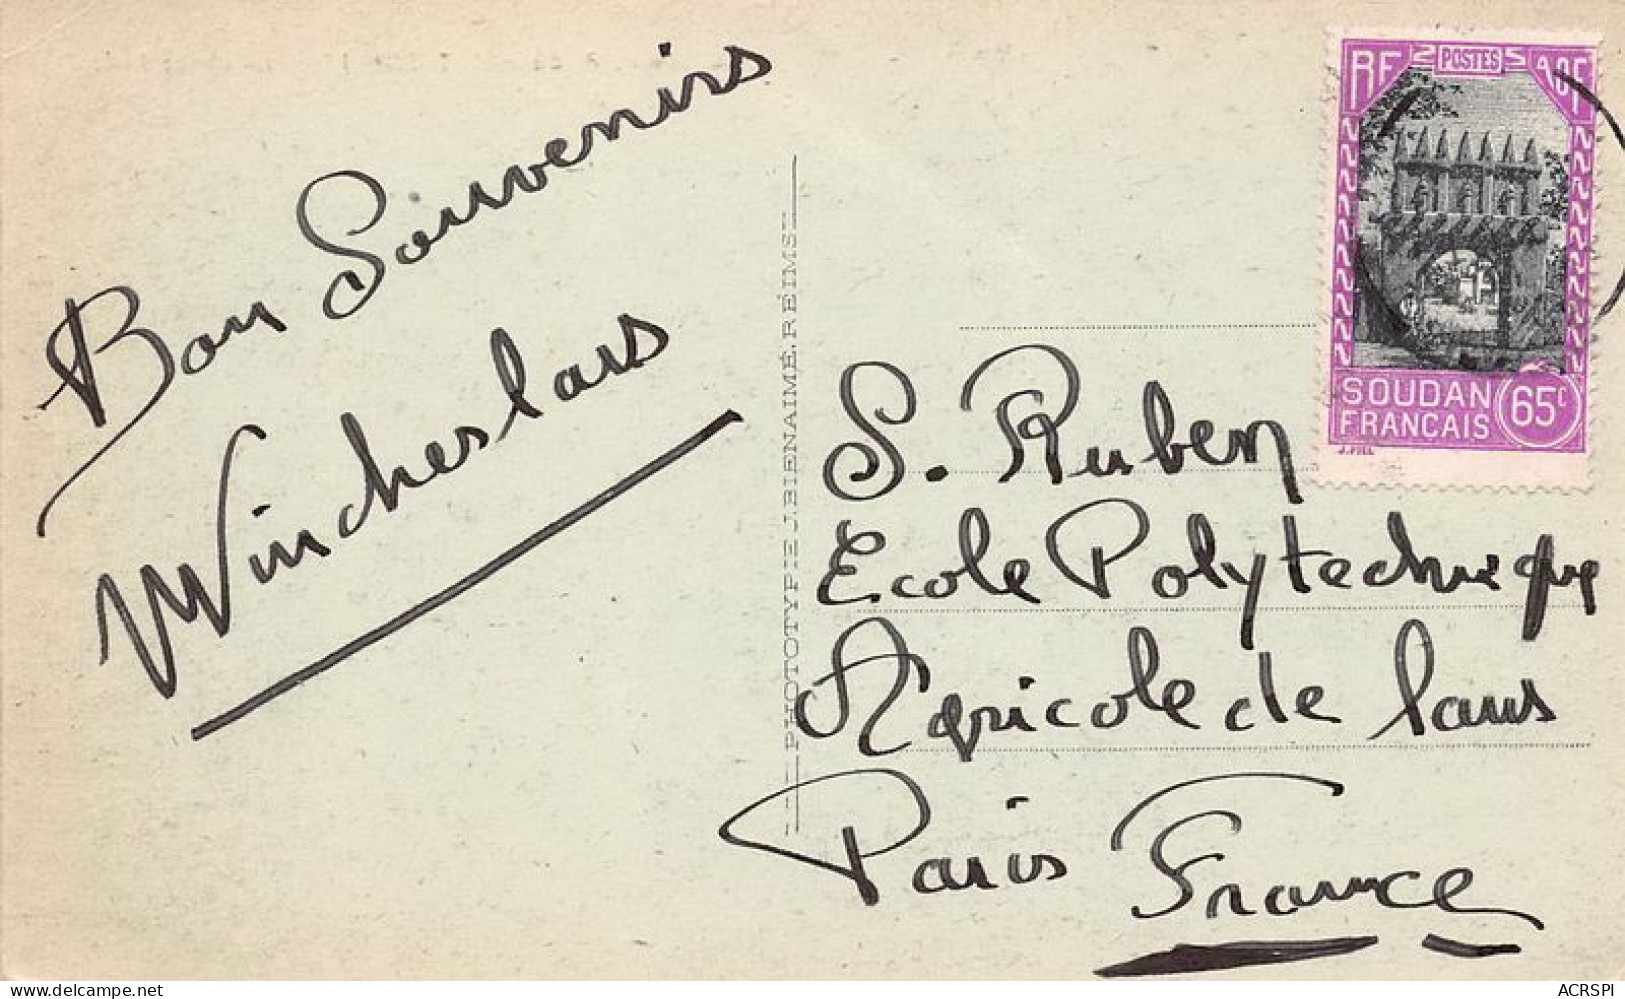 Bon Souvenirs
Wincheslaus
PHOTOTYPIE J. BIENAIMÉ, REIMS
RF POSTES AOF
SOUDAN
FRANCAIS 65c
S. Ruben
Ecole Polytechnique
Agricole de
Paris France
www.delcampe.net
ACRSPI